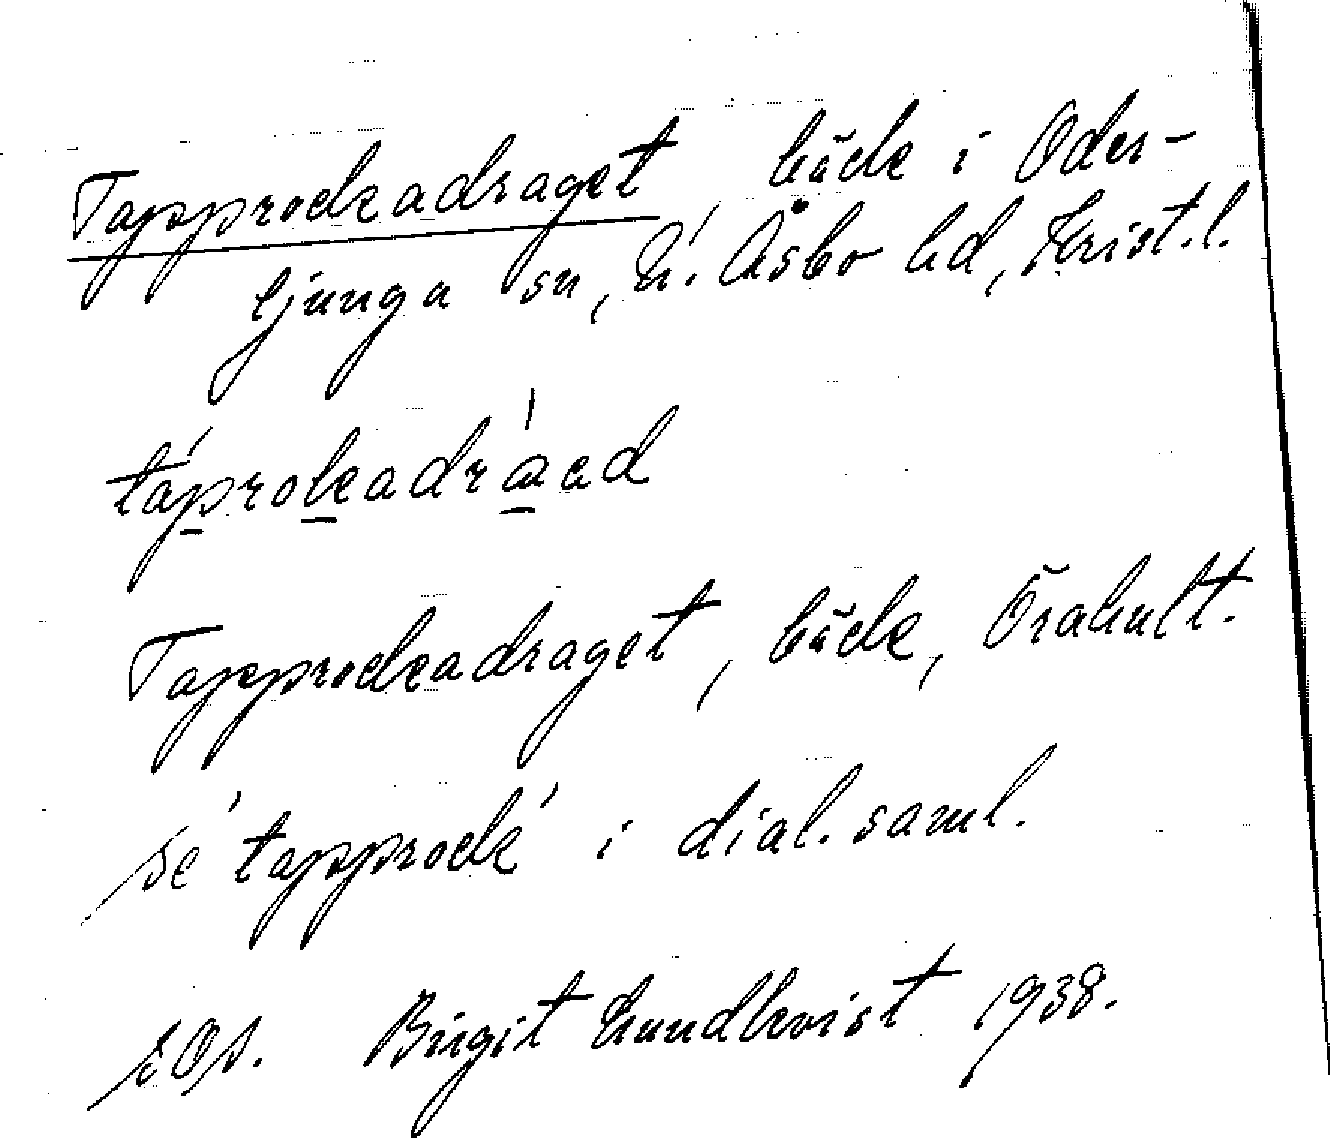 Tapprockadraget bäck i Öder-
ljunga sn, N. Åsbo hd, Krist.l.
táprokadráad
Tapprockadraget, bäck, Örahult.
se 'tapprock' i dial. saml.
Birgit Lundkvist 1938.